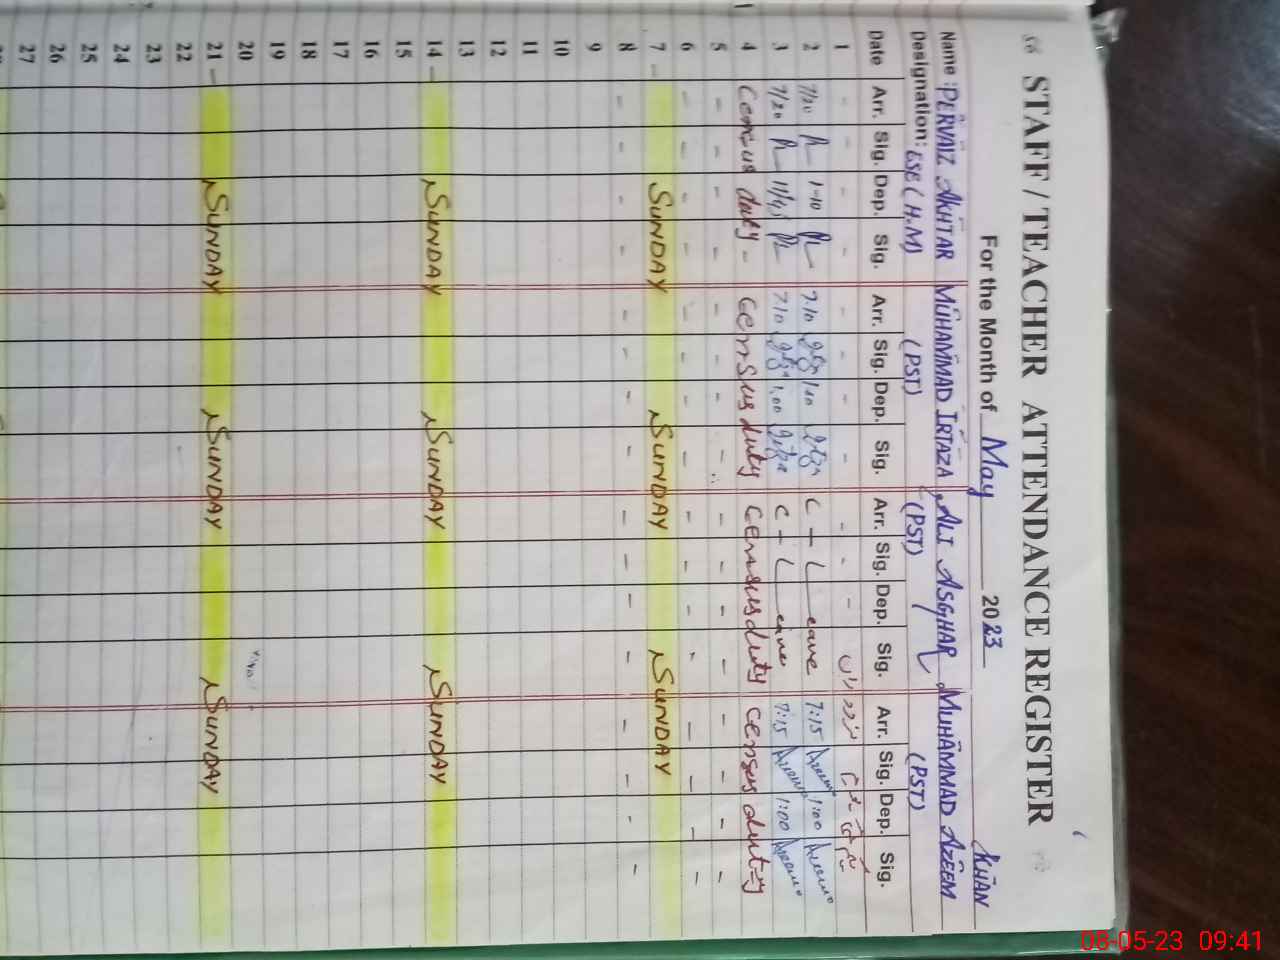 STAFF / TEACHER ATTENDANCE REGISTER
For the Month of May 2023
KHAN
Name: PERVAIZ AKHTAR MUHAMMAD IRTAZA ALI ASGHAR MUHAMMAD AZEEM
Designation: ESE (H.M) (PST) (PST) (PST)
Date Arr. Sig. Dep. Sig. Arr. Sig. Dep. Sig. Arr. Sig. Dep. Sig. Arr. Sig. Dep. Sig.
1 - - - - - - - - - - -
2 7/20 1-10 7.10 1.10 C-Leave 7:15 Azeem 1:00 Azeem
3 7/20 11/45 7.10 1.00 C-Leave 7:15 Azeem 1:00 Azeem
4 Census duty - Census duty Census duty Census duty
5 - - - - - - - - - - - - - - - -
6 - - - - - - - - - - - - - - - -
7 - SUNDAY SUNDAY SUNDAY
8 - - - - - - - - - - - - - - - -
9
10
11
12
13
14 - SUNDAY SUNDAY SUNDAY
15
16
17
18
19
20
21 - SUNDAY SUNDAY SUNDAY
22
23
24
25
26
27
08-05-23 09:41